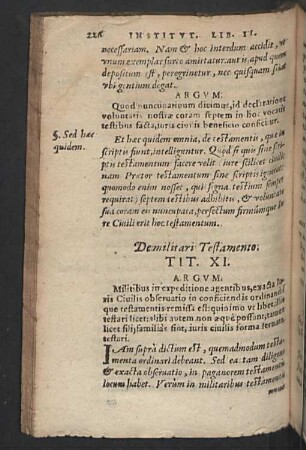 226 INSTITVT. LIB. II.
necessariam. Nam & hoc interdum accidit, ut
unum exemplar furto amittatur aut is, apud quem
depositum est, peregrinetur, nec quisquam sciat
ubi gentium degat.
ARGVM:
Quod nuncupatiuum dicimus, id declaratione
voluntatis nostræ coram septem in hoc vocatis
testibus facta, iuris ciuilis beneficio conficitur.
§. Sed hæc
quidem.
Et hæc quidem omnia, de testamentis, quæ in
scriptis fiunt, intelliguntur. Quod si quis sine scri-
ptis testamentum facere velit iure scilicet ciuili
nam Prætor testamentum sine scriptis ignorat
quomodo enim nosset, qui signa testium semper
requirat) septem testibus adhibitis, & volunta-
sua coram eis nuncupata, perfectum firmumque iu-
re Ciuili erit hoc testamentum.
De militari Testamento.
TIT. XI.
ARGVM:
Militibus in expeditione agentibus, exacta iu-
ris Ciuilis obseruatio in conficiendis ordinandis
que testamentis remissa est: quinimo vt libet, illi
testari licet: alibi autem non æque possunt, tametsi
licet filijfamiliâs sint, iuris ciuilis forma
testari.
IAm suprà dictum est, quemadmodum testa-
menta ordinari debeant. Sed ea tam diligens
& exacta obseruatio, in paganorem testamentis
locum habet. Verùm in militaribus testamentis